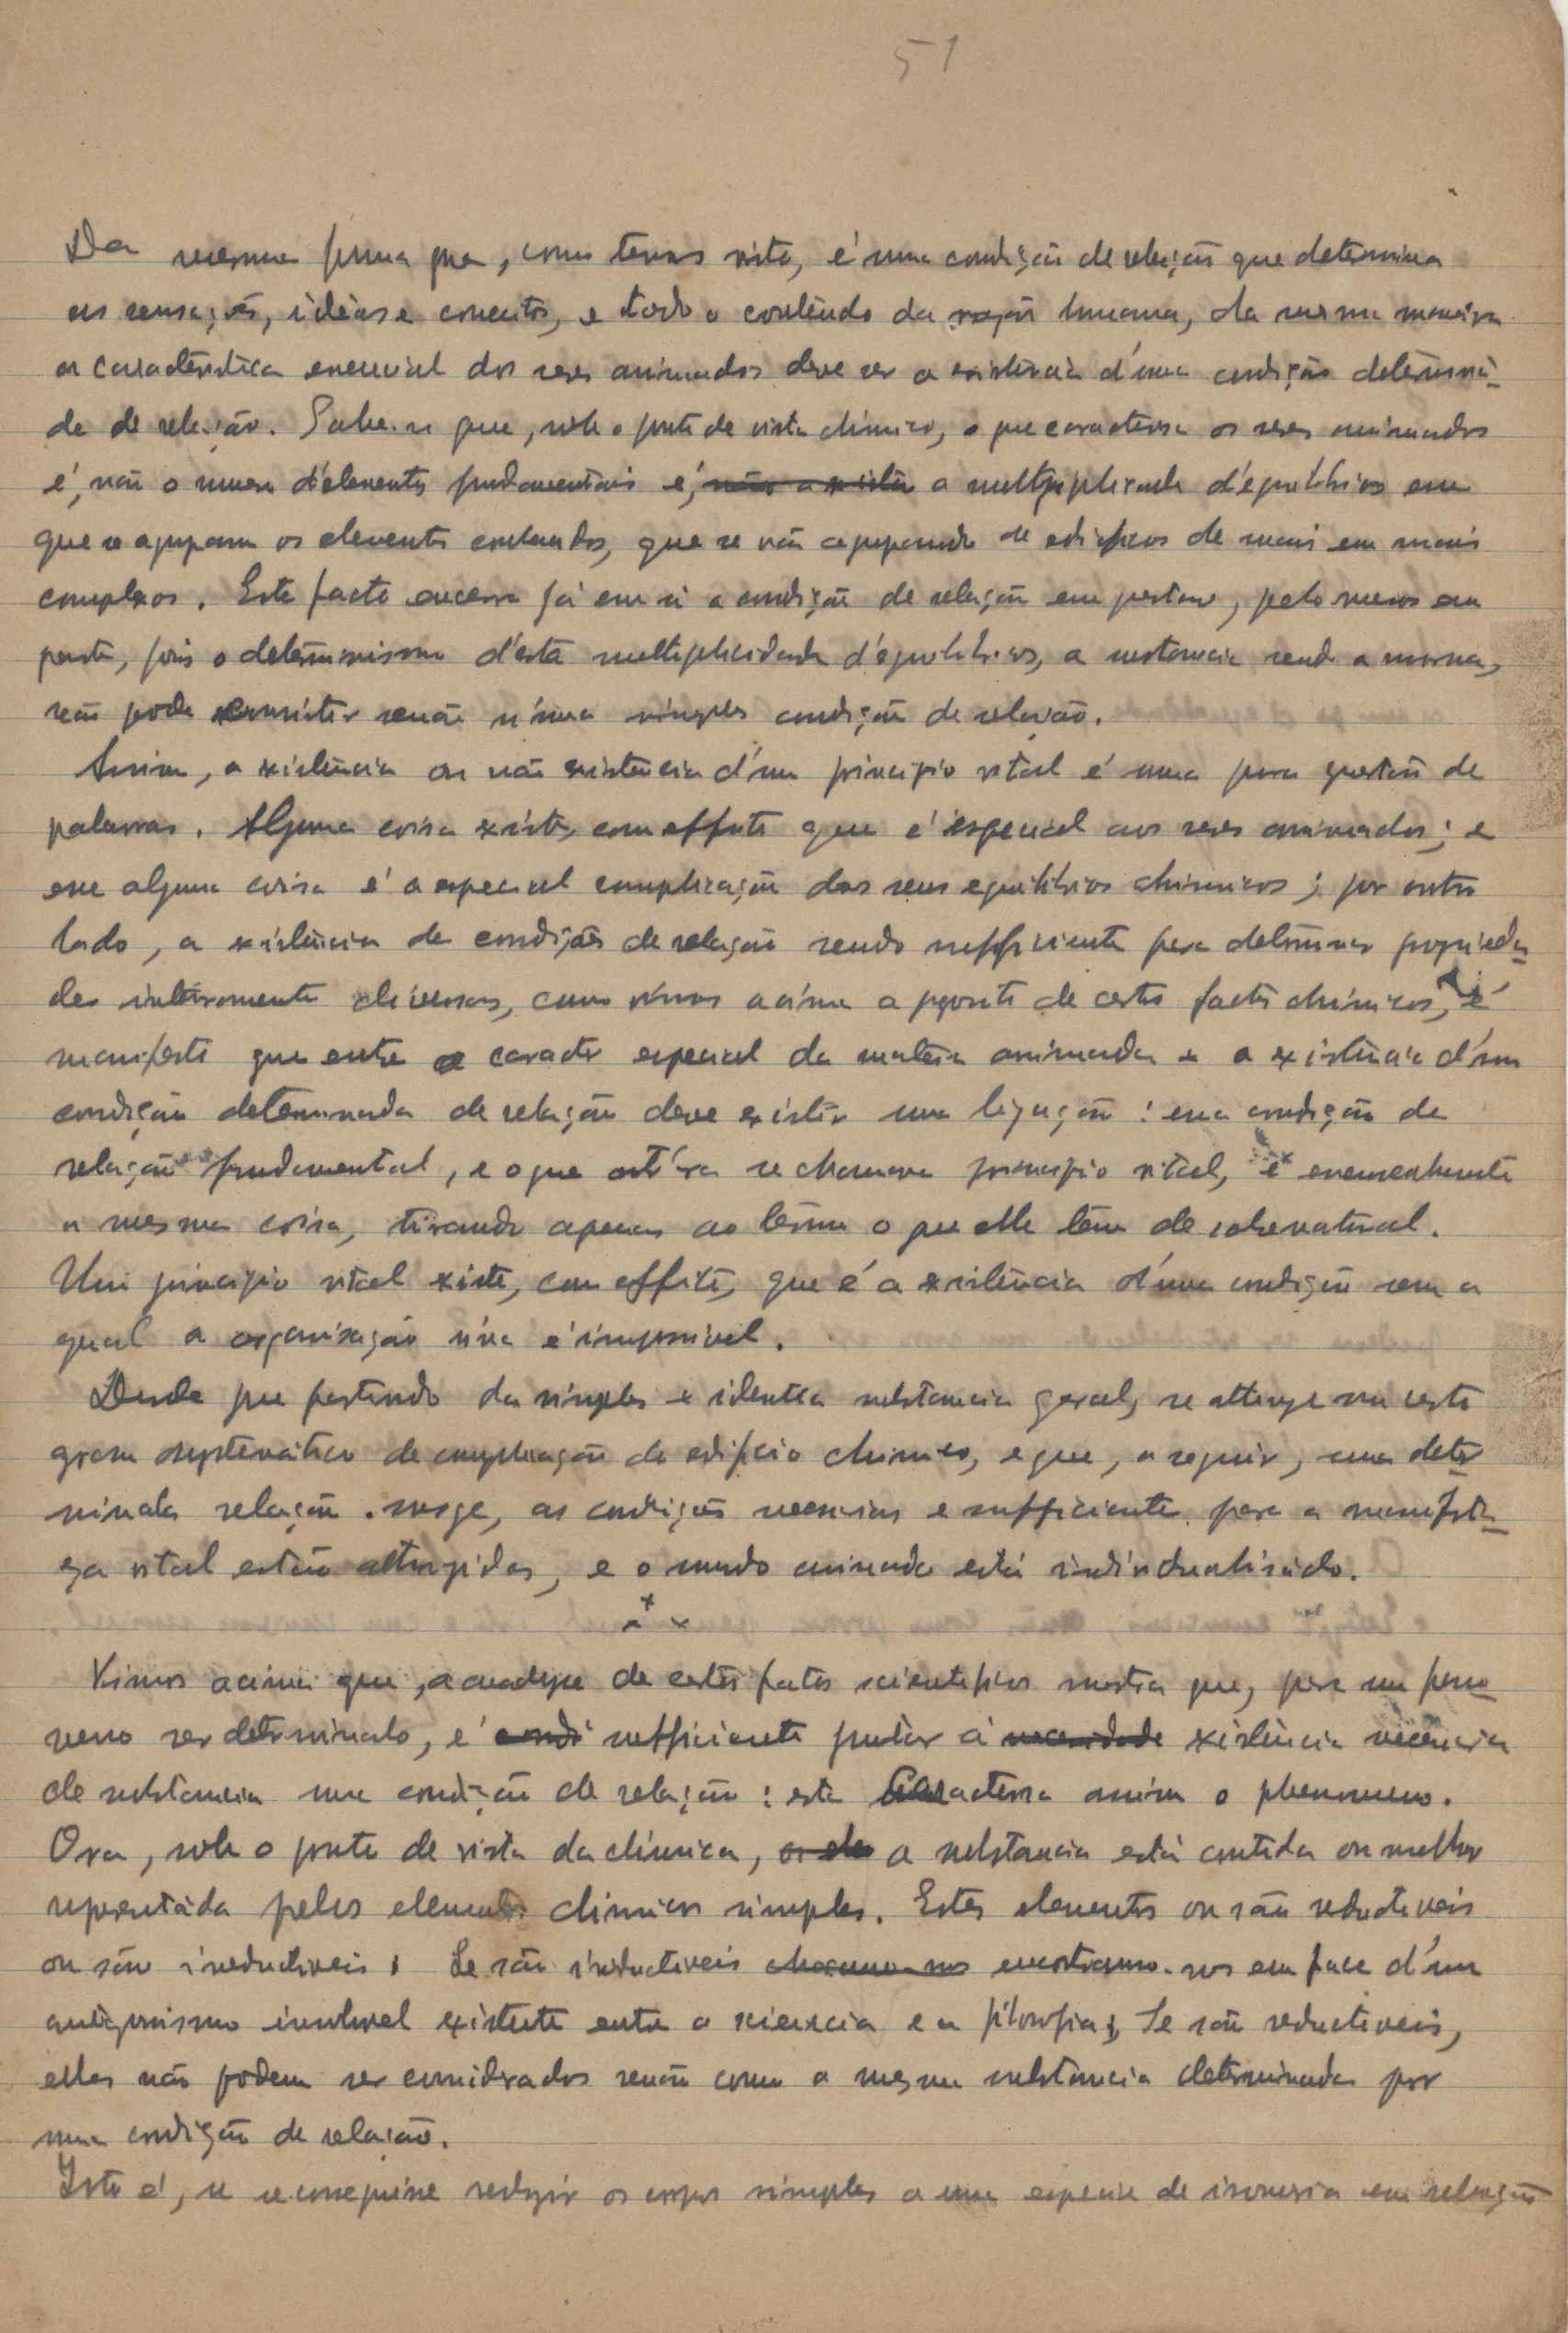 51
Da mesma forma que, como temos visto, é uma condição de relação que determina
as sensações, idèias e conceitos, e todo o contèudo da razão humana, da mesma maneira
a caracteristica essencial dos seres animados deve ser a existencia d'uma condição determina-
da de relação. Sabe-se que, sob o ponto de vista chimico, o que caracterisa os seres animados
é, não o numero d'elementos fundamentais é, não a existen a multiplicidade d'équilibrios em
que se agrupam os elementos, que se vão agrupando de edificios de mais em mais
complexos. Este facto encerra já em si a condição de relação em questão, pelo menos em
parte, pois o determinismo d'esta multiplicidade d'équilibrios, a substancia sendo a mesma,
não pode consistir senão n'uma simples condição de relação.
Assim, a existència ou não existència d'um principio vital é uma pura questão de
palavras. Alguma coisa existe, com effeito que é especial aos seres animados; e
esse alguma coisa é a especial complicação dos seus equilibrios chimicos; por outro
lado, a existència de condições de relação sendo sufficiente para determinar proprieda-
des inteiramente diversas, como vimos acima a proposito de certos factos chimicos, é
manifesto que entre o caracter especial da materia animada e a existència d'uma
condição determinada de relação deve existir uma ligação: essa condição de
relação fundamental, e o que outr'ora se chamava principio vital, é essencialmente
a mesma coisa, tirando apenas ao termo o que elle tem de sobrenatural.
Um principio vital existe, com effeito, que é a existència d'uma condição sem a
qual a organisação viva é impossivel.
Desde que partindo da simples e identica substancia geral, se attinge um certo
grau systemático de complicação do edificio chimico, e que, a seguir, uma deter-
minada relação surge, as condições necessarias e sufficientes para a manifesta-
ça vital estão attingidas, e o mundo animado está individualisádo.
x x x
Vimos acima que, a analyse de certos factos scientificos mostra que, para um feno-
meno ser determinado, é condi sufficiente juntar á necessidade existència necessaria
de substancia uma condição de relação: esta caracterisa assim o phenomeno.
Ora, sob o ponto de vista da chimica, os ele a substancia está contida ou melhor
representáda pelos elementos chimicos simples. Estes elementos ou são reductiveis
ou são irreductiveis. Se são irreductiveis chocamo-nos encontramo-nos em face d'um
antagonismo insoluvel existente entre a sciencia e a filosofia; Se são reductiveis,
elles não podem ser considerados senão como a mesma substancia determinada por
uma condição de relação.
Isto é, se se conseguisse reduzir os corpos simples a uma especie de isomeria em relação